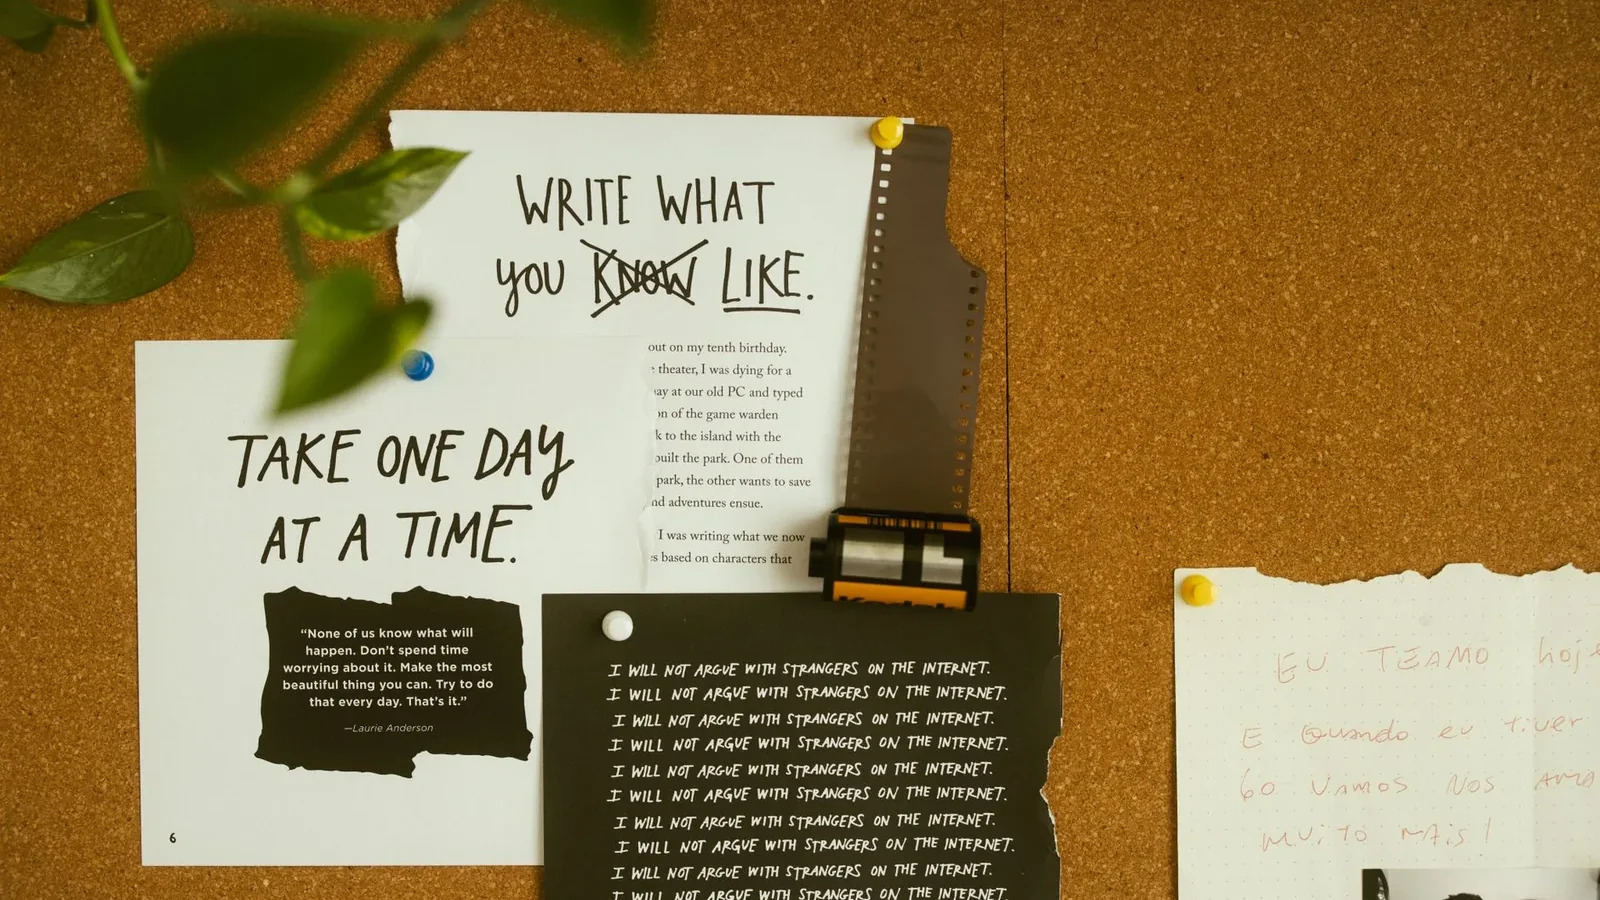 WRITE WHAT
YOU KNOW LIKE.
out on my tenth birthday.
theater, I was dying for a
at our old PC and typed
of the game warden
to the island with the
built the park. One of them
park, the other wants to save
adventures ensue.
I was writing what we now
based on characters that
TAKE ONE DAY
AT A TIME.
“None of us know what will
happen. Don’t spend time
worrying about it. Make the most
beautiful thing you can. Try to do
that every day. That’s it.”
—Laurie Anderson
6
Kodak
I WILL NOT ARGUE WITH STRANGERS ON THE INTERNET.
I WILL NOT ARGUE WITH STRANGERS ON THE INTERNET.
I WILL NOT ARGUE WITH STRANGERS ON THE INTERNET.
I WILL NOT ARGUE WITH STRANGERS ON THE INTERNET.
I WILL NOT ARGUE WITH STRANGERS ON THE INTERNET.
I WILL NOT ARGUE WITH STRANGERS ON THE INTERNET.
I WILL NOT ARGUE WITH STRANGERS ON THE INTERNET.
I WILL NOT ARGUE WITH STRANGERS ON THE INTERNET.
I WILL NOT ARGUE WITH STRANGERS ON THE INTERNET.
I WILL NOT ARGUE WITH STRANGERS ON THE INTERNET.
EU TEAMO hoje
E Quando eu tiver
60 VAMOS NOS
MUITO MAIS!